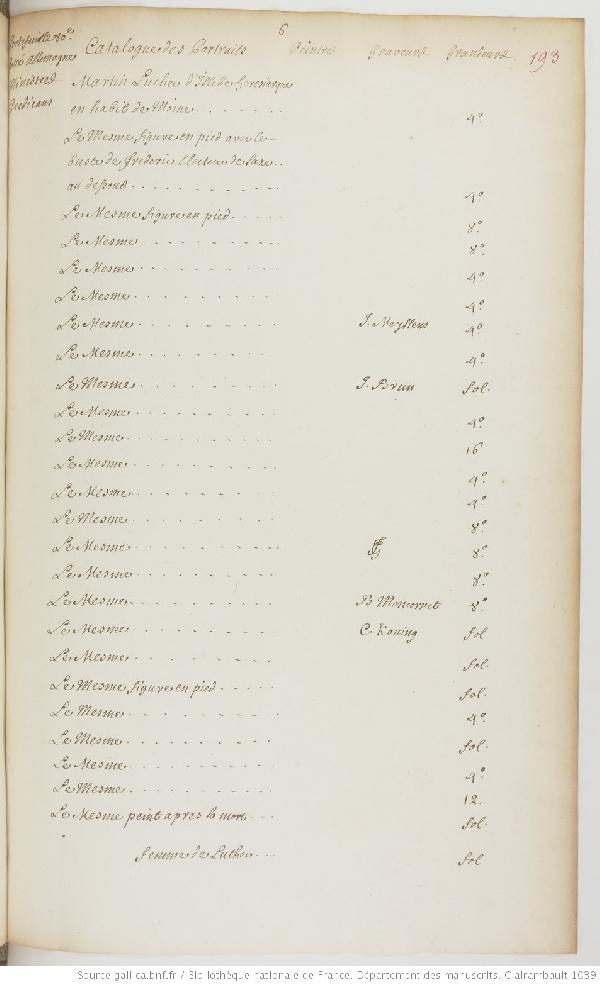 6
Portefeuille 10e. Catalogue des Portraits Peintres Graveurs Grandeurs 193
Allemagne
Ministres
Predicans
Martin Luther d'Islebe heresiarque
en habit de Moine . . . . . . . 4º
Le Mesme figure en pied avec le
buste de frederic Electeur de Saxe . .
au dessous . . . . . . . . . . 4º
Le Mesme figure en pied . . . . . 8º
Le Mesme . . . . . . . . . 8º
Le Mesme . . . . . . . . . 4º
Le Mesme . . . . . . . . . 4º
Le Mesme . . . . . . . . . J. Meyssens 4º
Le Mesme . . . . . . . . . 4º
Le Mesme . . . . . . . . . J. Brun fol.
Le Mesme . . . . . . . . . 4º
Le Mesme . . . . . . . . . 16
Le Mesme . . . . . . . . . 4º
Le Mesme . . . . . . . . . 4º
Le Mesme . . . . . . . . . 8º
Le Mesme . . . . . . . . . 8º
Le Mesme . . . . . . . . . 8º
Le Mesme . . . . . . . . . B Moncornet 8º
Le Mesme . . . . . . . . . C. Koning fol
Le Mesme . . . . . . . . . fol.
Le Mesme figure en pied . . . . . fol.
Le Mesme . . . . . . . . . 4º
Le Mesme . . . . . . . . . fol.
Le Mesme . . . . . . . . . 4º
Le Mesme . . . . . . . . . 12.
Le Mesme peint apres sa mort . . . fol.
femme de Luther . . . fol
Source gallica.bnf.fr / Bibliothèque nationale de France. Département des manuscrits. Clairambault 1039